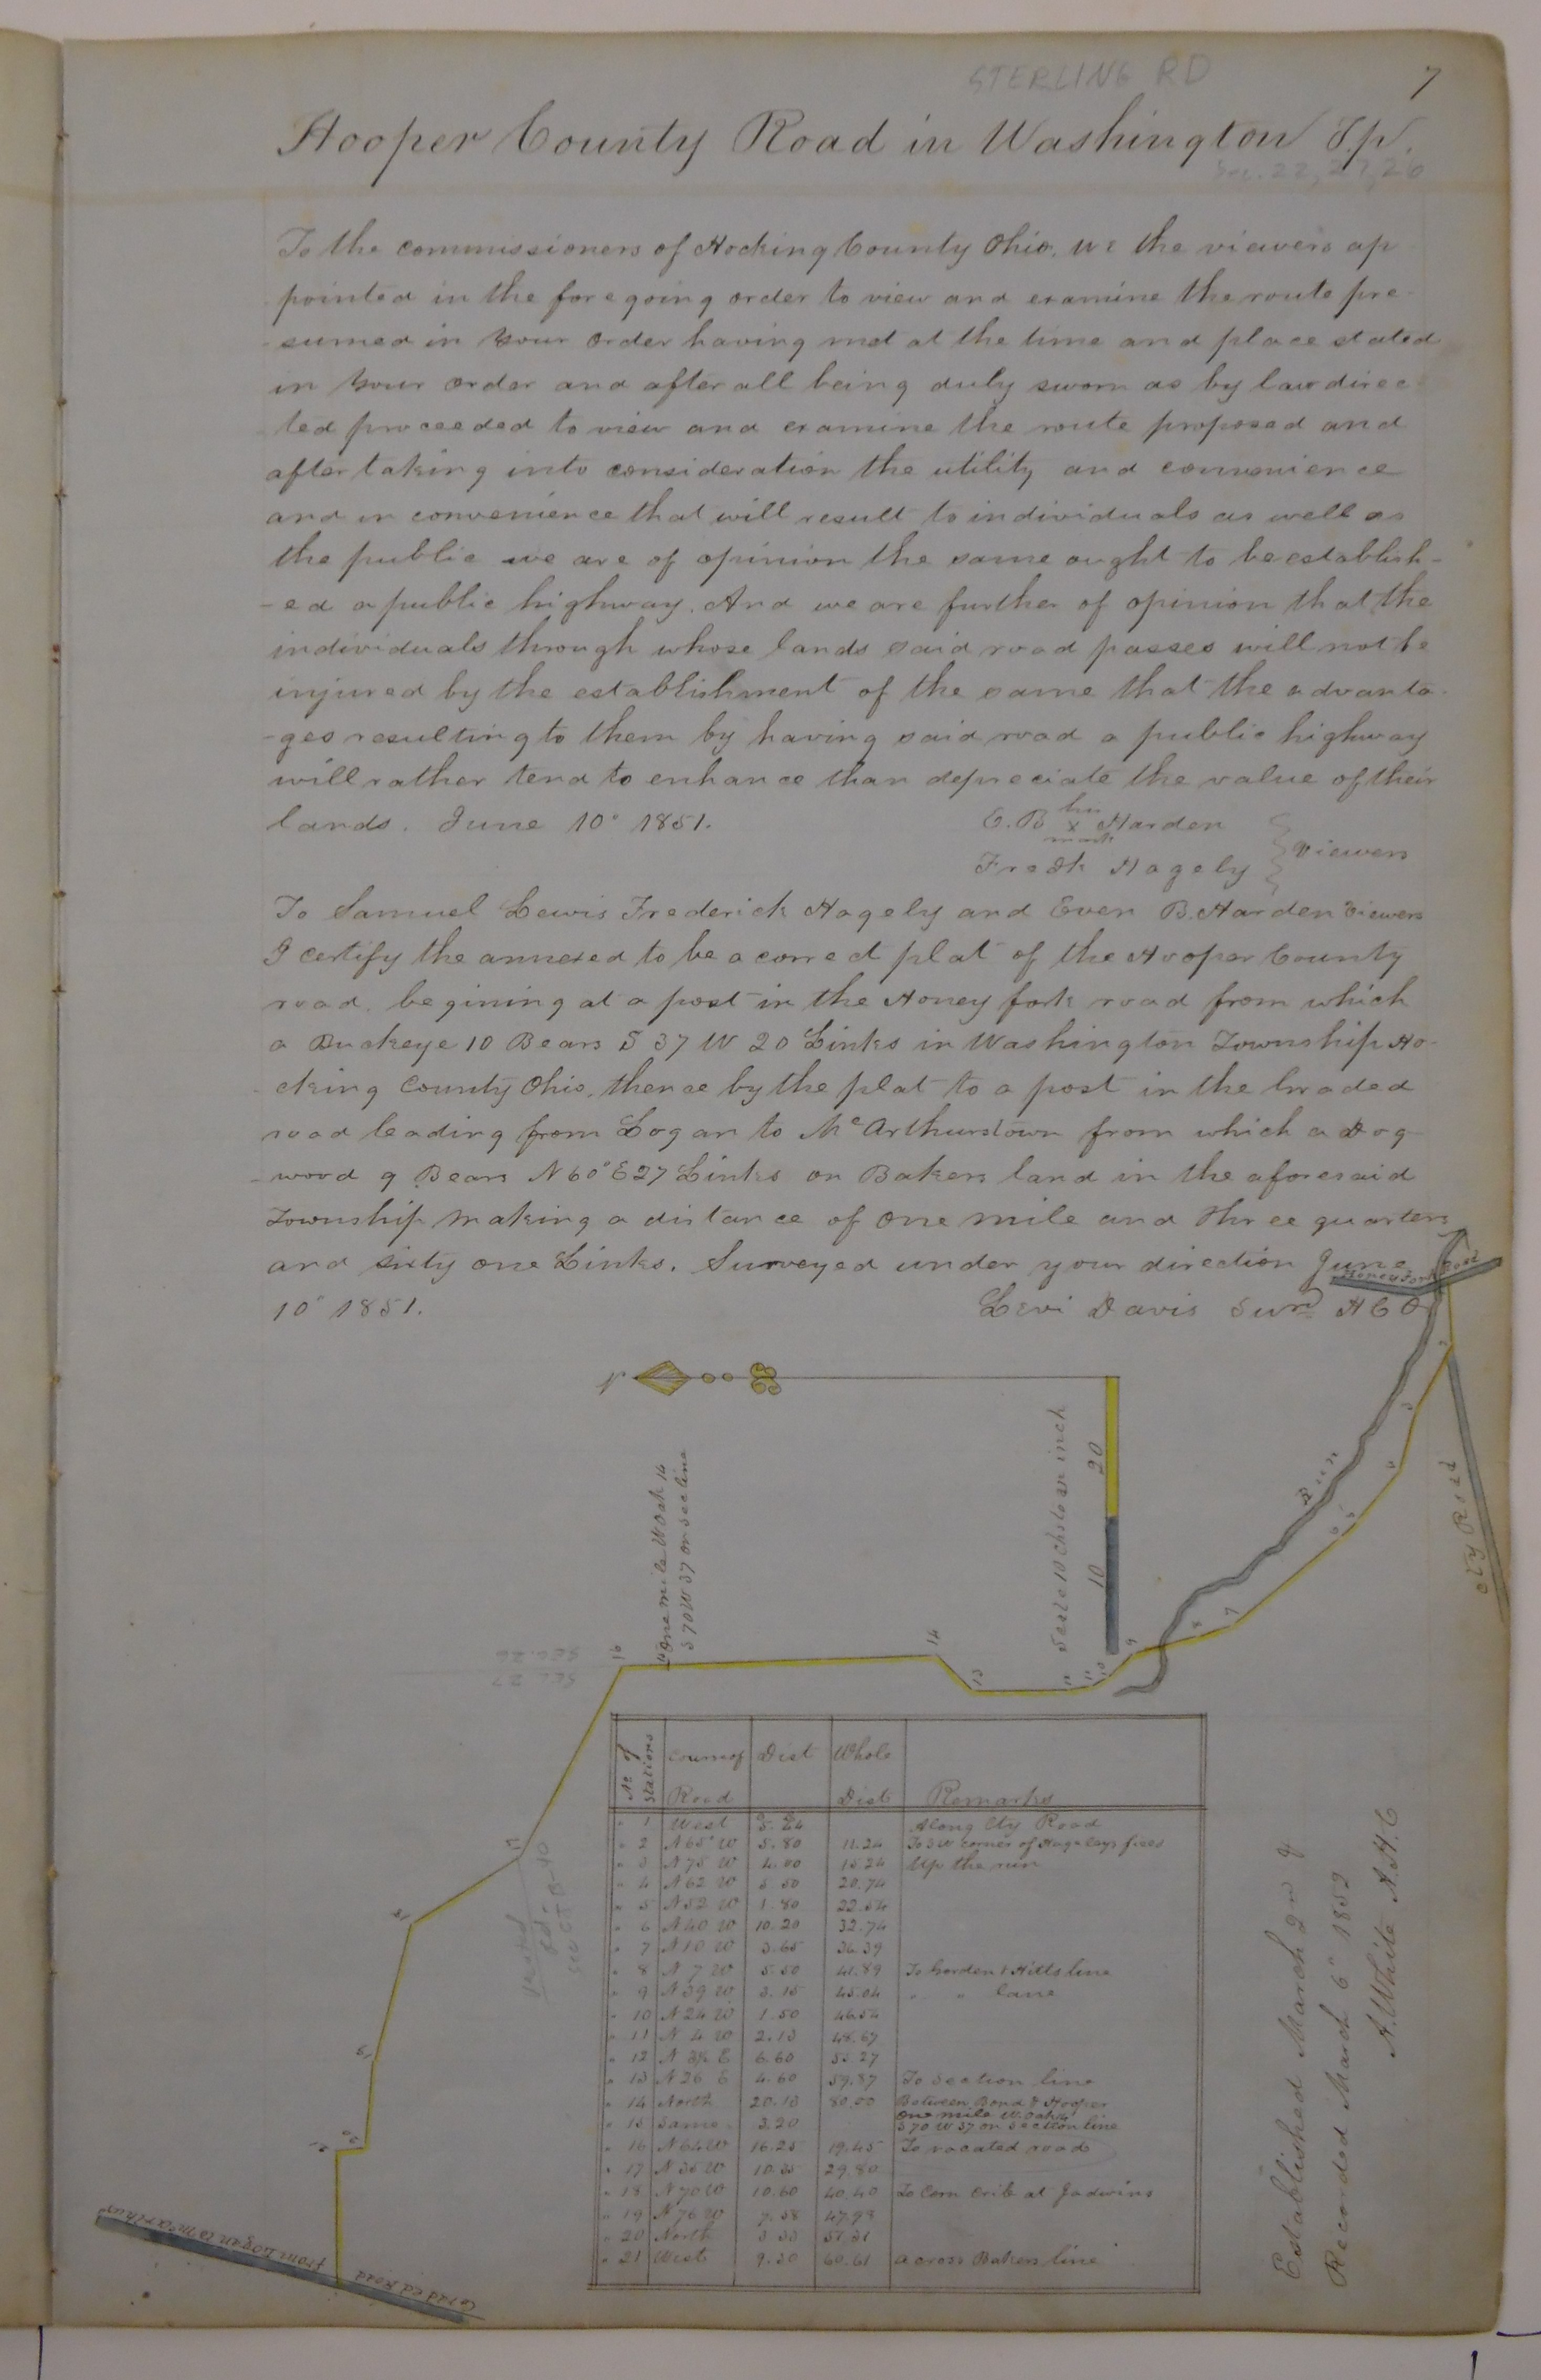 STERLING RD
7
Hooper County Road in Washington T.p.
Sec. 22, 27, 26
To the commissioners of Hocking County Ohio. We the viewers ap
pointed in the foregoing order to view and examine the route pre-
-sumed in your order having met at the time and place stated
in your order and after all being duly sworn as by law direc-
ted proceeded to view and examine the route proposed and
after taking into consideration the utility and convenience
and in convenience that will result to individuals as well as
the public we are of opinion the same ought to be establish-
-ed a public highway. And we are further of opinion that the
individuals through whose lands said road passes will not be
injured by the establishment of the same that the advanta-
-ges resulting to them by having said road a public highway
will rather tend to enhance than depreciate the value of their
lands. June 10" 1851. E.B his x mark Harden
Fredk Hagely } Viewers
To Samuel Lewis Frederick Hagely and Even B. Harden Viewers
I certify the annexed to be a correct plat of the Hooper County
road. begining at a post in the Honey fork road from which
a Buckeye 10 Bears S 37 W 20 Links in Washington Township Ho-
cking County Ohio, thence by the plat to a post in the Graded
road leading from Logan to McArthurstown from which a Dog-
-wood 9 Bears N 60° E 27 Links on Bakers land in the aforesaid
Township making a distance of one mile and three quarters
and sixty one Links. Surveyed under your direction June
10" 1851. Levi Davis Surv H C O
Honey Fork Road
N
One mile W Oak 14
S 70 W 37 on sec line
Scale 10 chs to an inch
10 20
Run
Cty Road
SEC. 26
SEC 27
Vacated
Rd.
See CT B-40
No of Stations Course of Road Dist Whole Dist Remarks
" 1 West 5.24 Along Cty Road
" 2 N 65° W 5.80 11.24 To SW corner of Hagelays field
" 3 N 75 W 4.00 15.24 Up the run
" 4 N 62 W 5.50 20.74
" 5 N 52 W 1.80 22.54
" 6 N 40 W 10.20 32.74
" 7 N 10 W 3.65 36.39
" 8 N 7 W 5.50 41.89 To Harden & Hills line
" 9 N 39 W 3.15 45.04 " " lane
" 10 N 24 W 1.50 46.54
" 11 N 4 W 2.13 48.67
" 12 N 3½ E 6.60 55.27
" 13 N 26 E 4.60 59.87 To Section line
" 14 North 20.13 80.00 Between Bond & Hooper
" 15 Same 3.20 One mile W. Oak 14 S 70 W 37 on Section line
" 16 N 64 W 16.25 19.45 To vacated road
" 17 N 35 W 10.35 29.80
" 18 N 70 W 10.60 40.40 To Corn Crib at Gadwins
" 19 N 76 W 7.58 47.98
" 20 North 3.33 51.31
" 21 West 9.30 60.61 across Bakers line
Graded Road
from Logan to McArthur
Established March 2nd &
Recorded March 6" 1852
A. White A.H.C